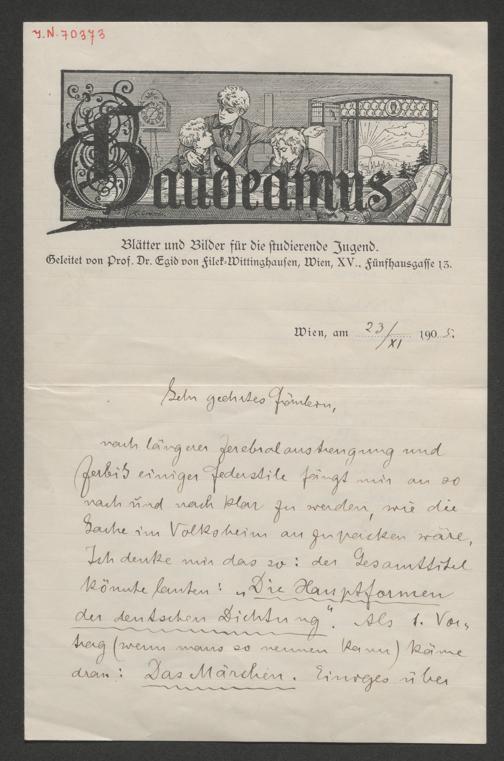 J.N. 70373
Gaudeamus
Blätter und Bilder für die studierende Jugend.
Geleitet von Prof. Dr. Egid von Filek-Wittinghausen, Wien, XV., Fünfhausgasse 13.
Wien, am 23/XI 1905.
Sehr geehrtes Fräulein,
nach längerer Zerebralanstrengung und
Zerbiß einiger Federstile fängt mir an so
nach und nach klar zu werden, wie die
Sache im Volksheim anzupacken wäre.
Ich denke mir das so: der Gesamttitel
könnte lauten: „Die Hauptformen
der deutschen Dichtung". Als 1. Vor-
trag (wenn mans so nennen kann) käme
dran: Das Märchen. Einiges über